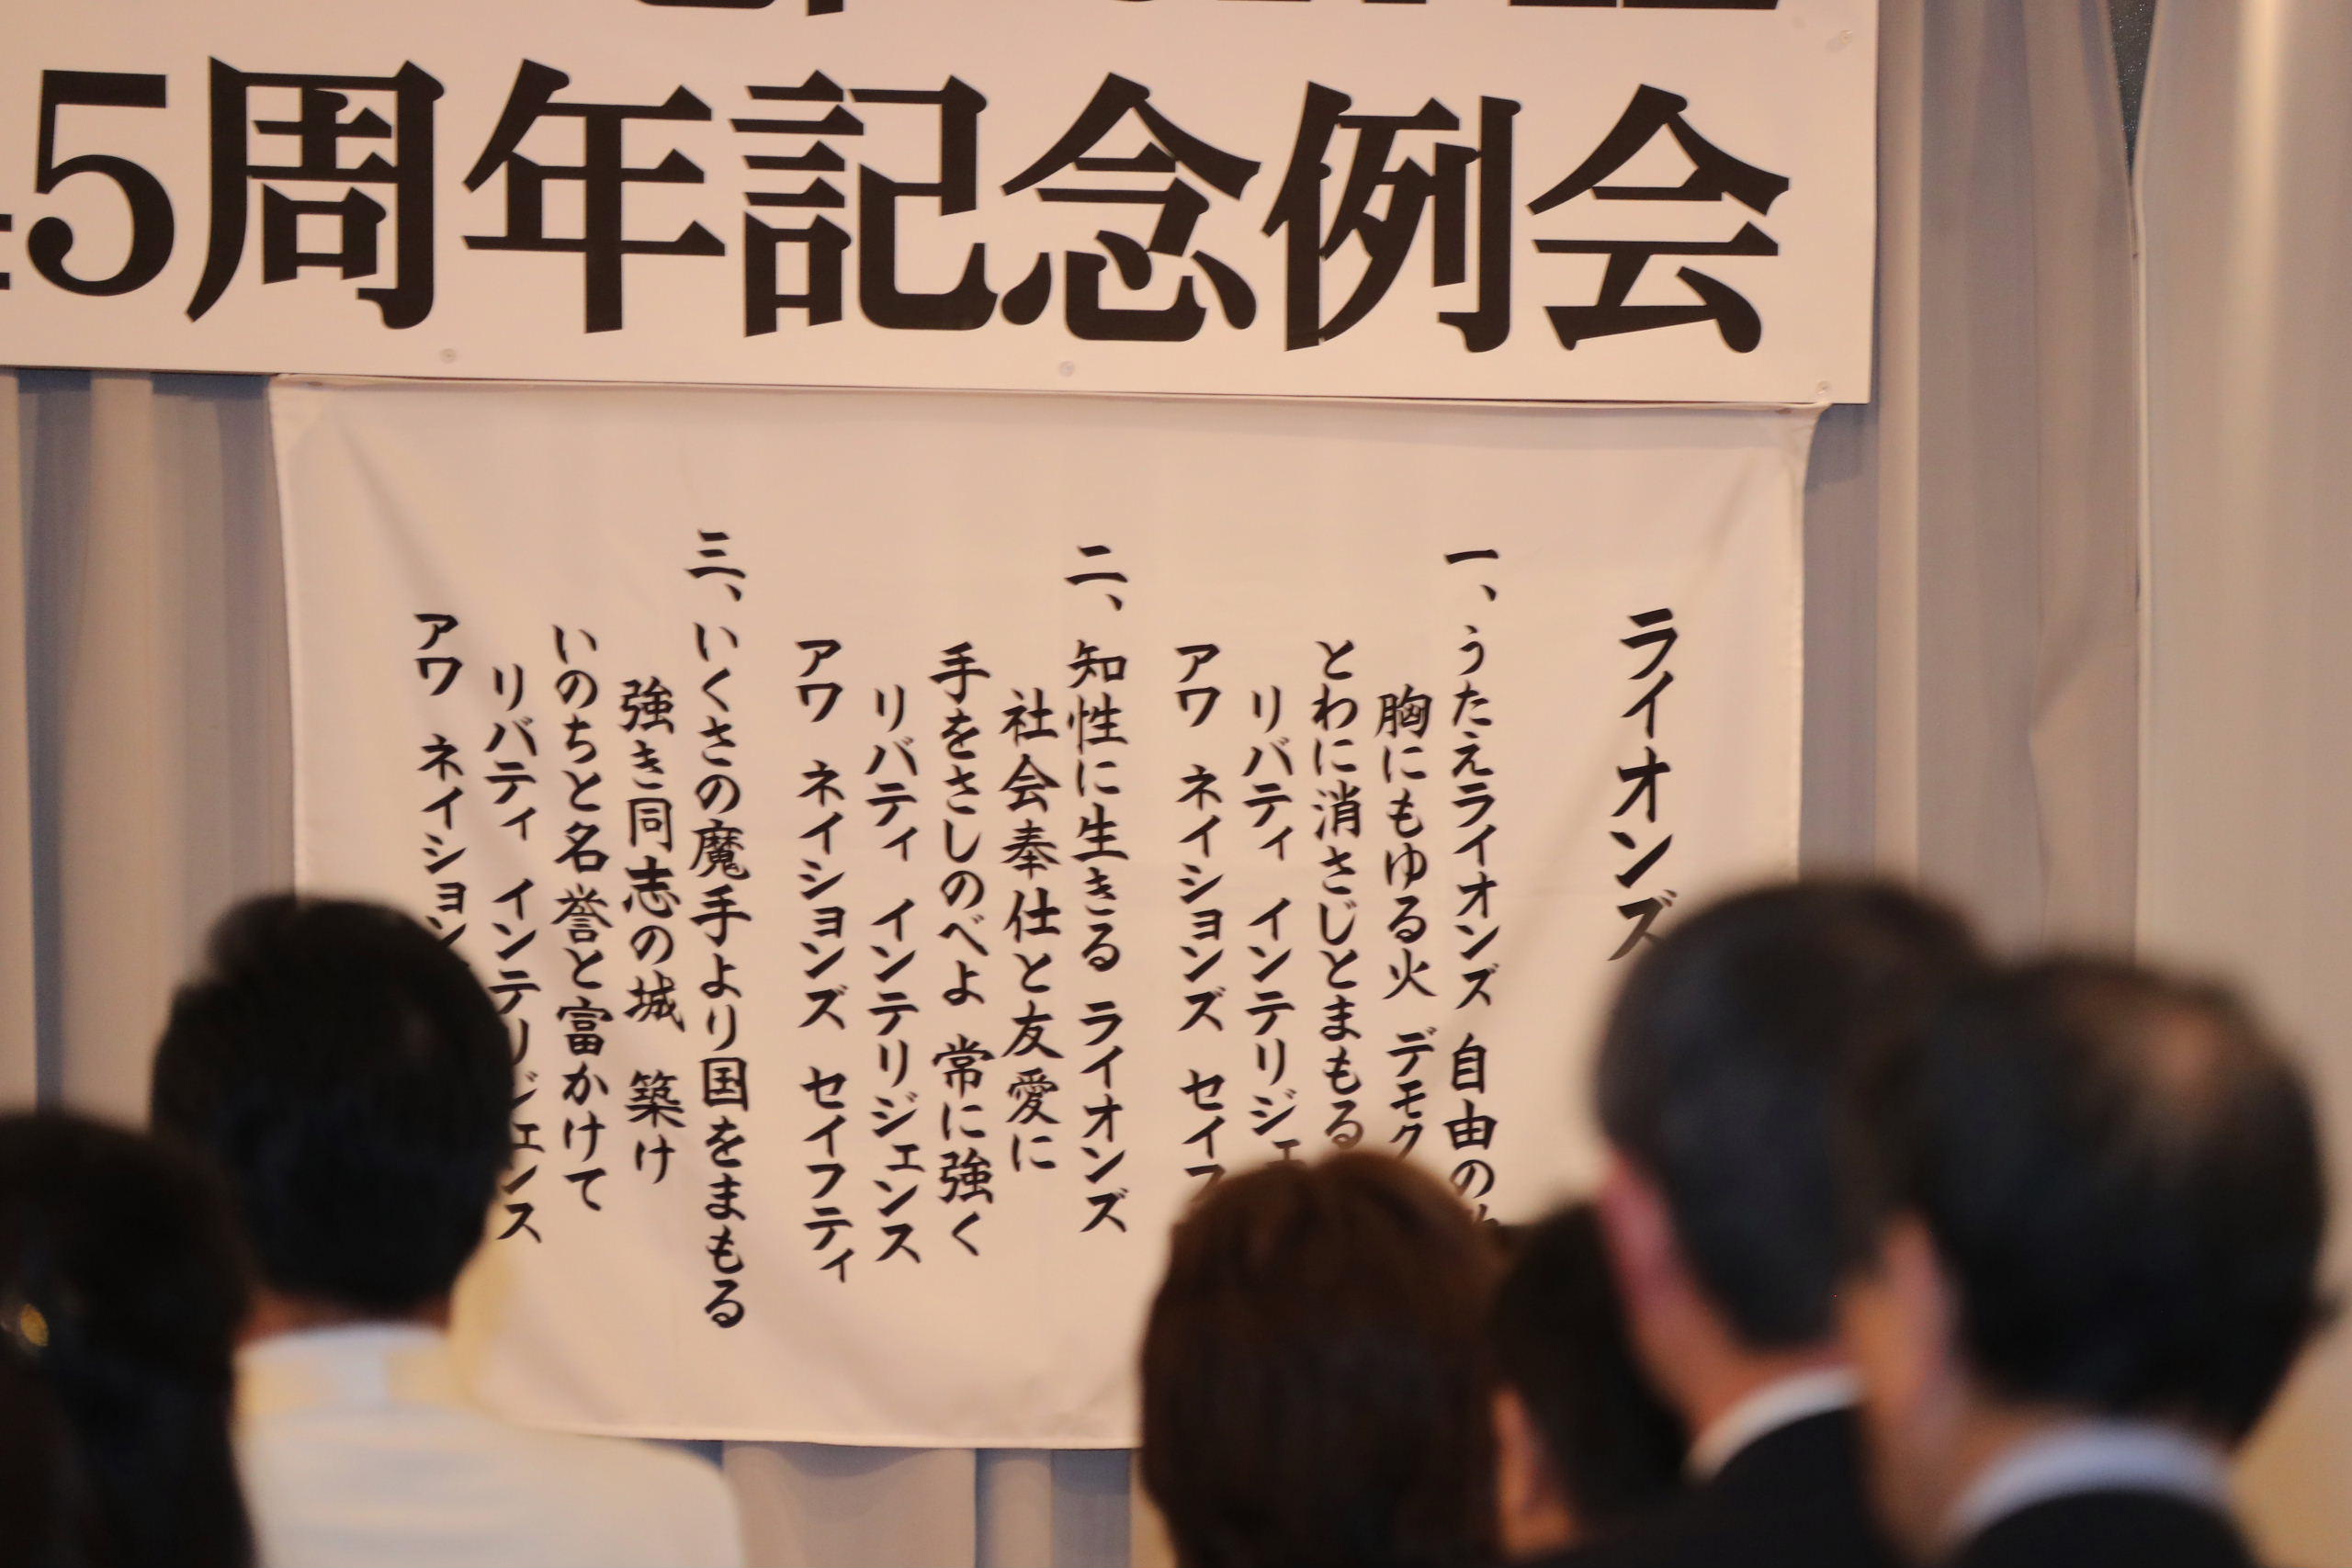 5周年記念例会
ライオンズ
一、うたえライオンズ 自由の
胸にもゆる火 デモク
とわに消さじとまもる
リバティ インテリジェ
アワ ネイションズ セイフ
二、知性に生きる ライオンズ
社会奉仕と友愛に
手をさしのべよ 常に強く
リバティ インテリジェンス
アワ ネイションズ セイフティ
三、いくさの魔手より国をまもる
強き同志の城 築け
いのちと名誉と富かけて
リバティ インテリジェンス
アワ ネイション